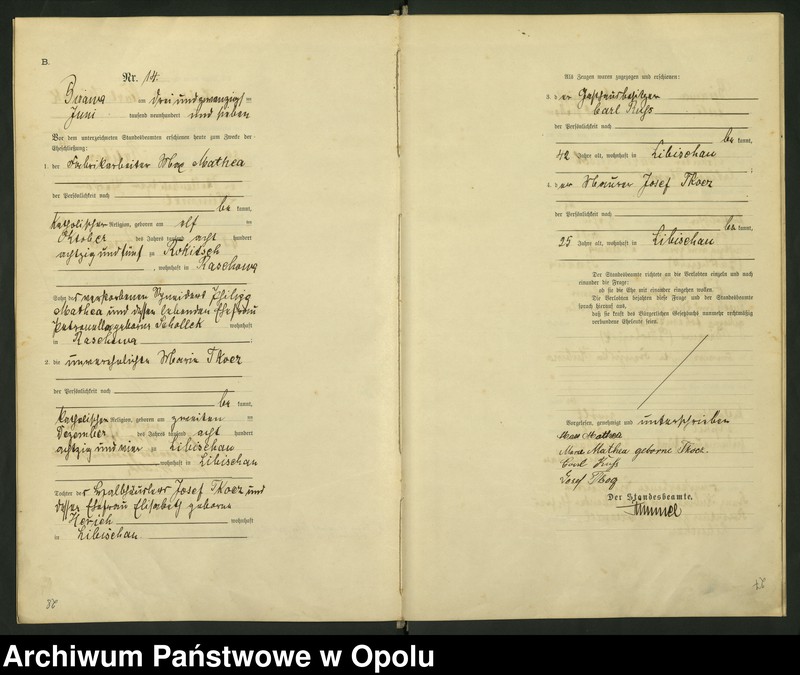 B.
Nr. 14.
Birawa am dreiundzwanzigsten
Juni tausend neunhundert und sieben
Vor dem unterzeichneten Standesbeamten erschienen heute zum Zwecke der
Eheschließung:
1. der Fabrikarbeiter Max Mathea
der Persönlichkeit nach
be kannt,
katholischer Religion, geboren am elf ten
Oktober des Jahres tausend acht hundert
achtzig und fünf zu Rokitsch
, wohnhaft in Raschowa
Sohn des verstorbenen Schneiders Philipp
Mathea und dessen lebenden Ehefrau
Petronella geborne Scholleck wohnhaft
in Raschowa ;
2. die unverehelichte Marie Tkocz
der Persönlichkeit nach
be kannt,
katholischer Religion, geboren am zweiten
Dezember des Jahres tausend acht hundert
achtzig und vier zu Libischau
wohnhaft in Libischau
Tochter des Josef Tkocz und
dessen Ehefrau Elisabeth geborne
wohnhaft
in Libischau
38
Als Zeugen waren zugezogen und erschienen:
3. der Gasthausbesitzer
Carl Kuss
der Persönlichkeit nach
be kannt,
42 Jahre alt, wohnhaft in Libischau
;
4. der Maurer Josef Tkocz
der Persönlichkeit nach
be kannt,
25 Jahre alt, wohnhaft in Libischau
Der Standesbeamte richtete an die Verlobten einzeln und nach
einander die Frage:
ob sie die Ehe mit einander eingehen wollen.
Die Verlobten bejahten diese Frage und der Standesbeamte
sprach hierauf aus,
daß sie kraft des Bürgerlichen Gesetzbuchs nunmehr rechtmäßig
verbundene Eheleute seien.
Vorgelesen, genehmigt und unterschrieben
Max Mathea
Marie Mathea geborne Tkocz.
Carl Kuss
Josef Tkocz
Der Standesbeamte.
Archiwum Państwowe w Opolu